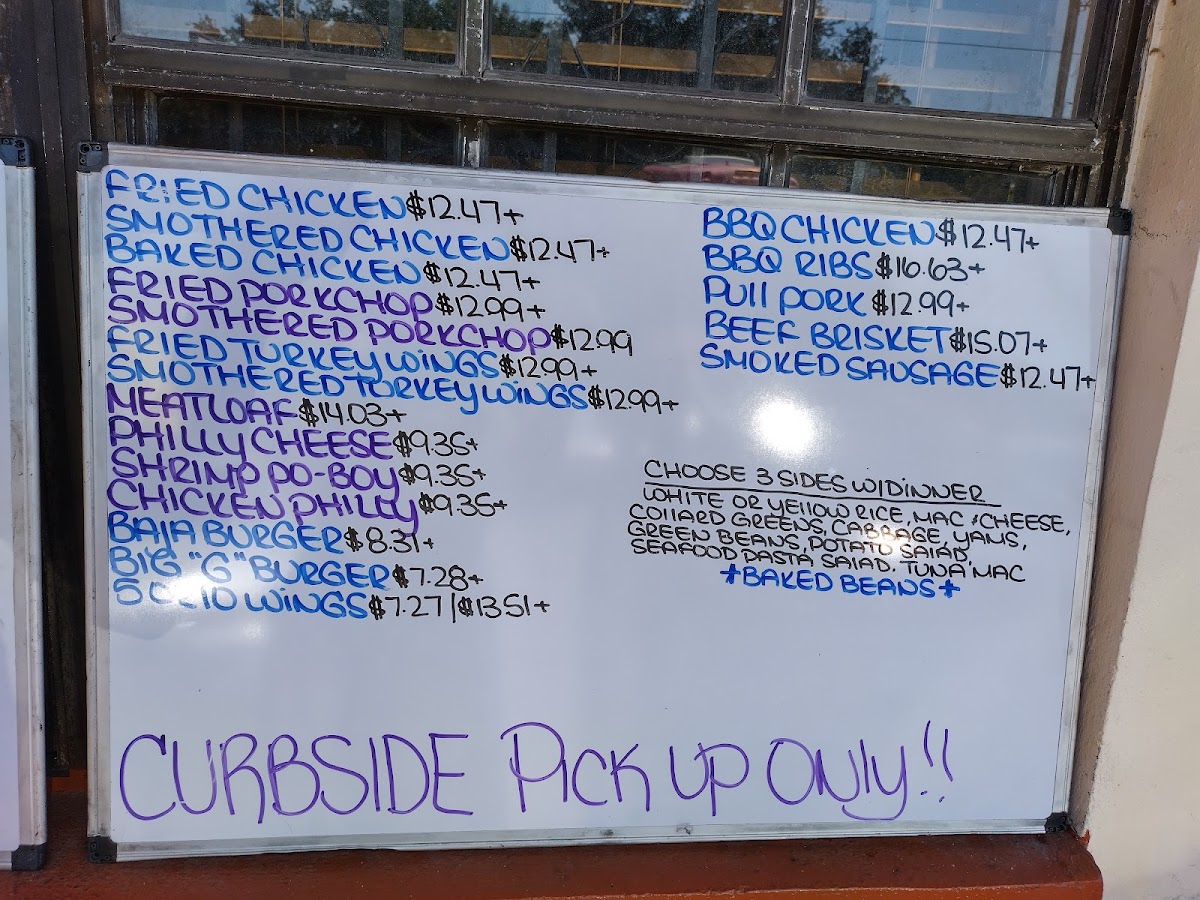 FRIED CHICKEN $12.47+
SMOTHERED CHICKEN $12.47+
BAKED CHICKEN $12.47+
FRIED PORKCHOP $12.99+
SMOTHERED PORKCHOP $12.99
FRIED TURKEY WINGS $12.99+
SMOTHERED TURKEY WINGS $12.99+
MEATLOAF $14.03+
PHILLY CHEESE $9.35+
SHRIMP PO-BOY $9.35+
CHICKEN PHILLY $9.35+
BAJA BURGER $8.31+
BIG "G" BURGER $7.28+
5 10 WINGS $7.27 | $13.51+
BBQ CHICKEN $12.47+
BBQ RIBS $16.63+
PUll PORK $12.99+
BEEF BRISKET $15.07+
SMOKED SAUSAGE $12.47+
CHOOSE 3 SIDES W/DINNER
WHITE OR YELLOW RICE, MAC & CHEESE,
COLLARD GREENS, CABBAGE, YAMS,
GREEN BEANS, POTATO SALAD,
SEAFOOD PASTA SALAD, TUNA MAC
*BAKED BEANS*
CURBSIDE PICK UP ONLY!!